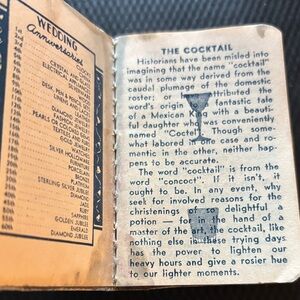 WEDDING
Anniversaries
1st
2nd
3rd
CLOCKS
CRYSTAL AND GLASS
ELECTRICAL APPLIANCES
DESK, PEN & PENCIL SETS
LINENS AND LACES
LEATHER
DIAMOND JEWELRY
PEARLS OR COLORED GEMS
TEXTILES AND FURS
GOLD JEWELRY
SILVER HOLLOWWARE
PORCELAIN
PLATINUM
STERLING SILVER JUBILEE
DIAMOND
JADE
RUBY
SAPPHIRE
GOLDEN JUBILEE
EMERALD
DIAMOND JUBILEE
THE COCKTAIL
Historians have been misled into
imagining that the name "cocktail"
was in some way derived from the
caudal plumage of the domestic
roster; or attributed the
word's origin fantastic tale
of a Mexican King with a beauti-
ful daughter who was conveniently
named "Coctel". Though some-
what labored in one case and ro-
mantic in the other, neither hap-
pens to be accurate.
The word "cocktail" is from the
word "concoct". If it isn't, it
ought to be. In any event, why
seek for involved reasons for the
christenings of a delightful a
potion — for in the hand of a
master of the art, the cocktail, like
nothing else in these trying days
has the power to lighten our
heavy hours and give a rosier hue
to our lighter moments.